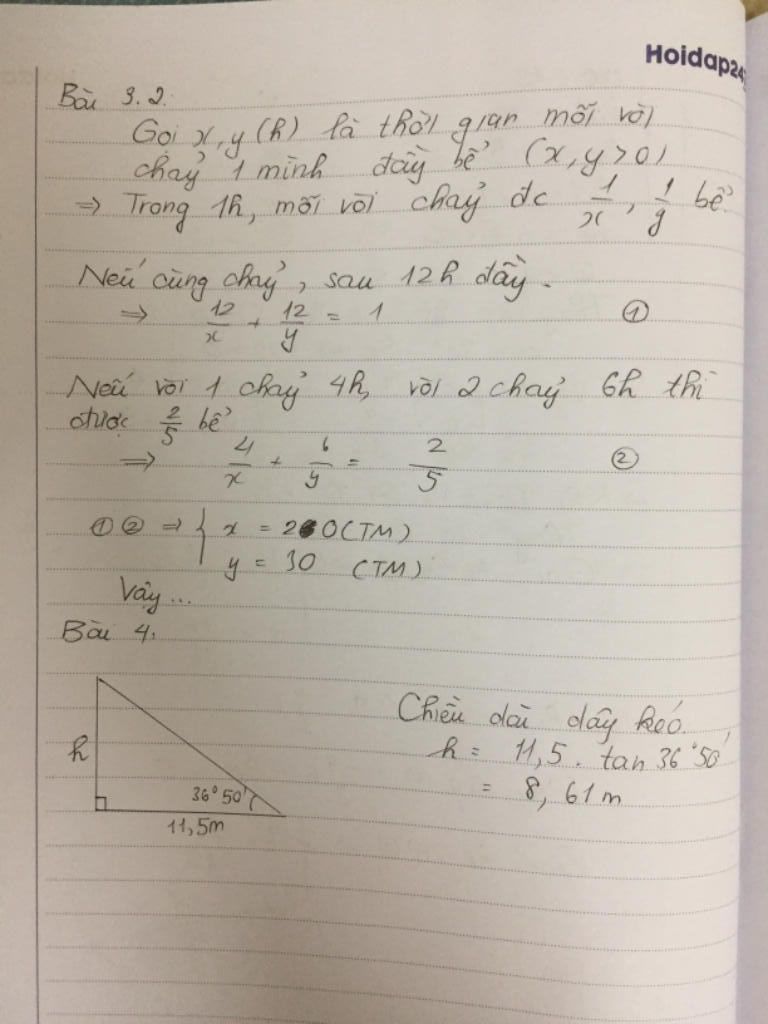 Hoidap24
Bài 3.2.
Gọi x, y (h) là thời gian mỗi vòi
chảy 1 mình đầy bể (x, y > 0)
⇒ Trong 1h, mỗi vòi chảy đc 1/x, 1/y bể.
Nếu cùng chảy, sau 12h đầy.
⇒ 12/x + 12/y = 1 ①
Nếu vòi 1 chảy 4h, vòi 2 chảy 6h thì
được 2/5 bể
⇒ 4/x + 6/y = 2/5 ②
① ② ⇒ { x = 20 (TM)
y = 30 (TM)
Vậy...
Bài 4.
Chiều dài dây kéo.
h = 11,5 . tan 36°50'
= 8,61m
h
36°50'
11,5m